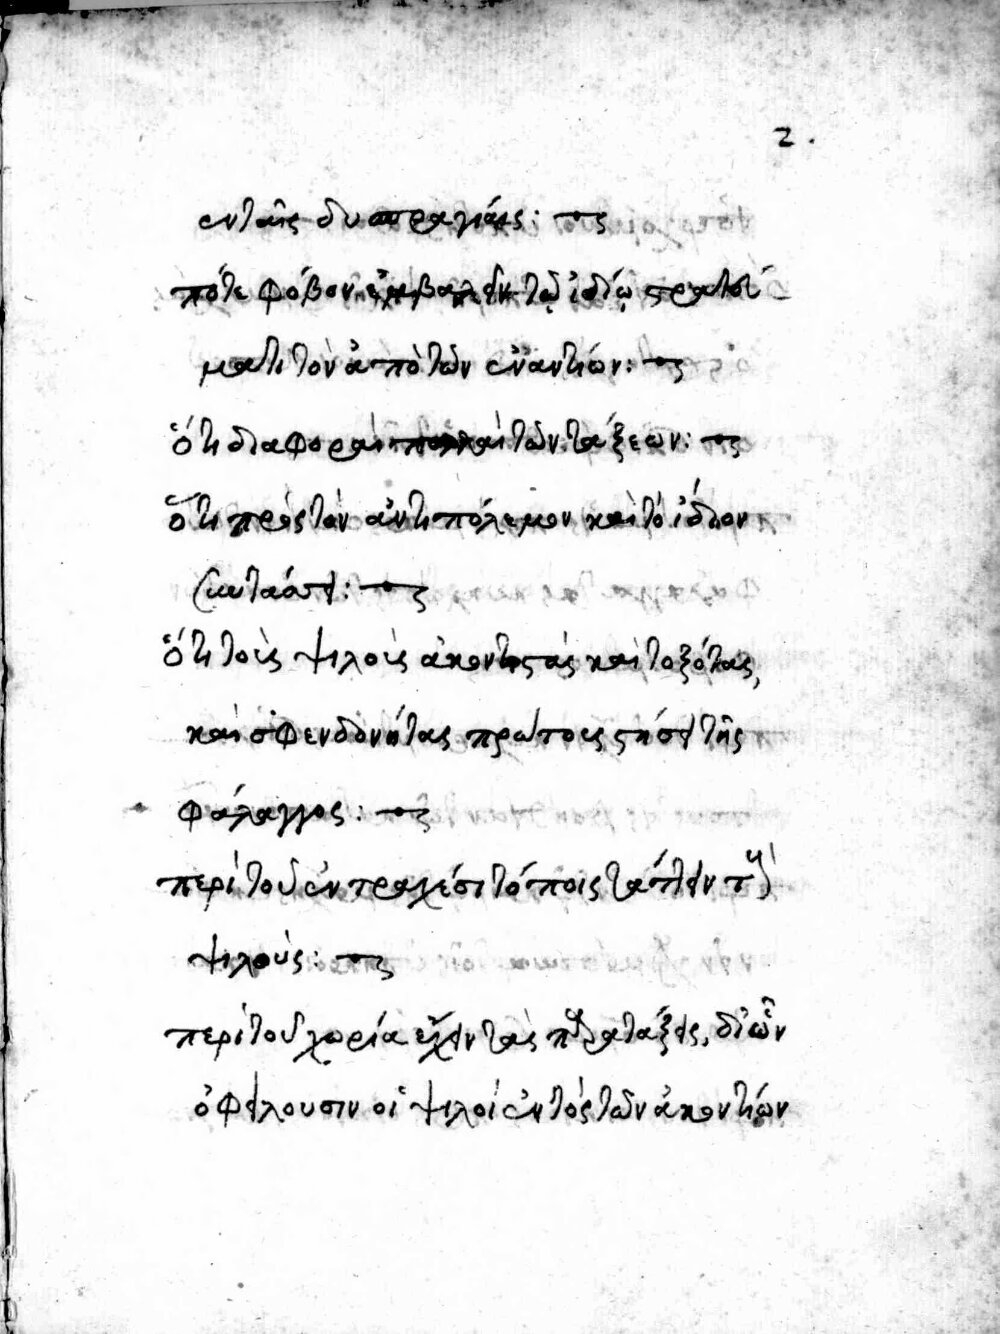 2.
ἐν ταῖς δυσπραγίαις:
πότε φόβον ἐμβαλεῖν τῷ ἰδίῳ στρατεύ
ματι τὸν ἀπὸ τῶν ἐναντίων:
ὅτι διαφοραὶ πολλαὶ τῶν τάξεων:
ὅτι πρὸς τὸν ἀντιπόλεμον καὶ τὸ ἴδιον
ὅτι τοὺς ψιλοὺς ἀκοντιστὰς καὶ τοξότας,
καὶ σφενδονήτας πρώτους στήσει τῆς
φάλαγγος:
περὶ τοῦ ἐν τραχέσι τόποις τάττειν τοὺς
ψιλούς:
περὶ τοῦ χωρία ἔχειν τὰς παρατάξεις, δι' ὧν
ὀφείλουσιν οἱ ψιλοὶ ἐντὸς τῶν ἀκοντίων